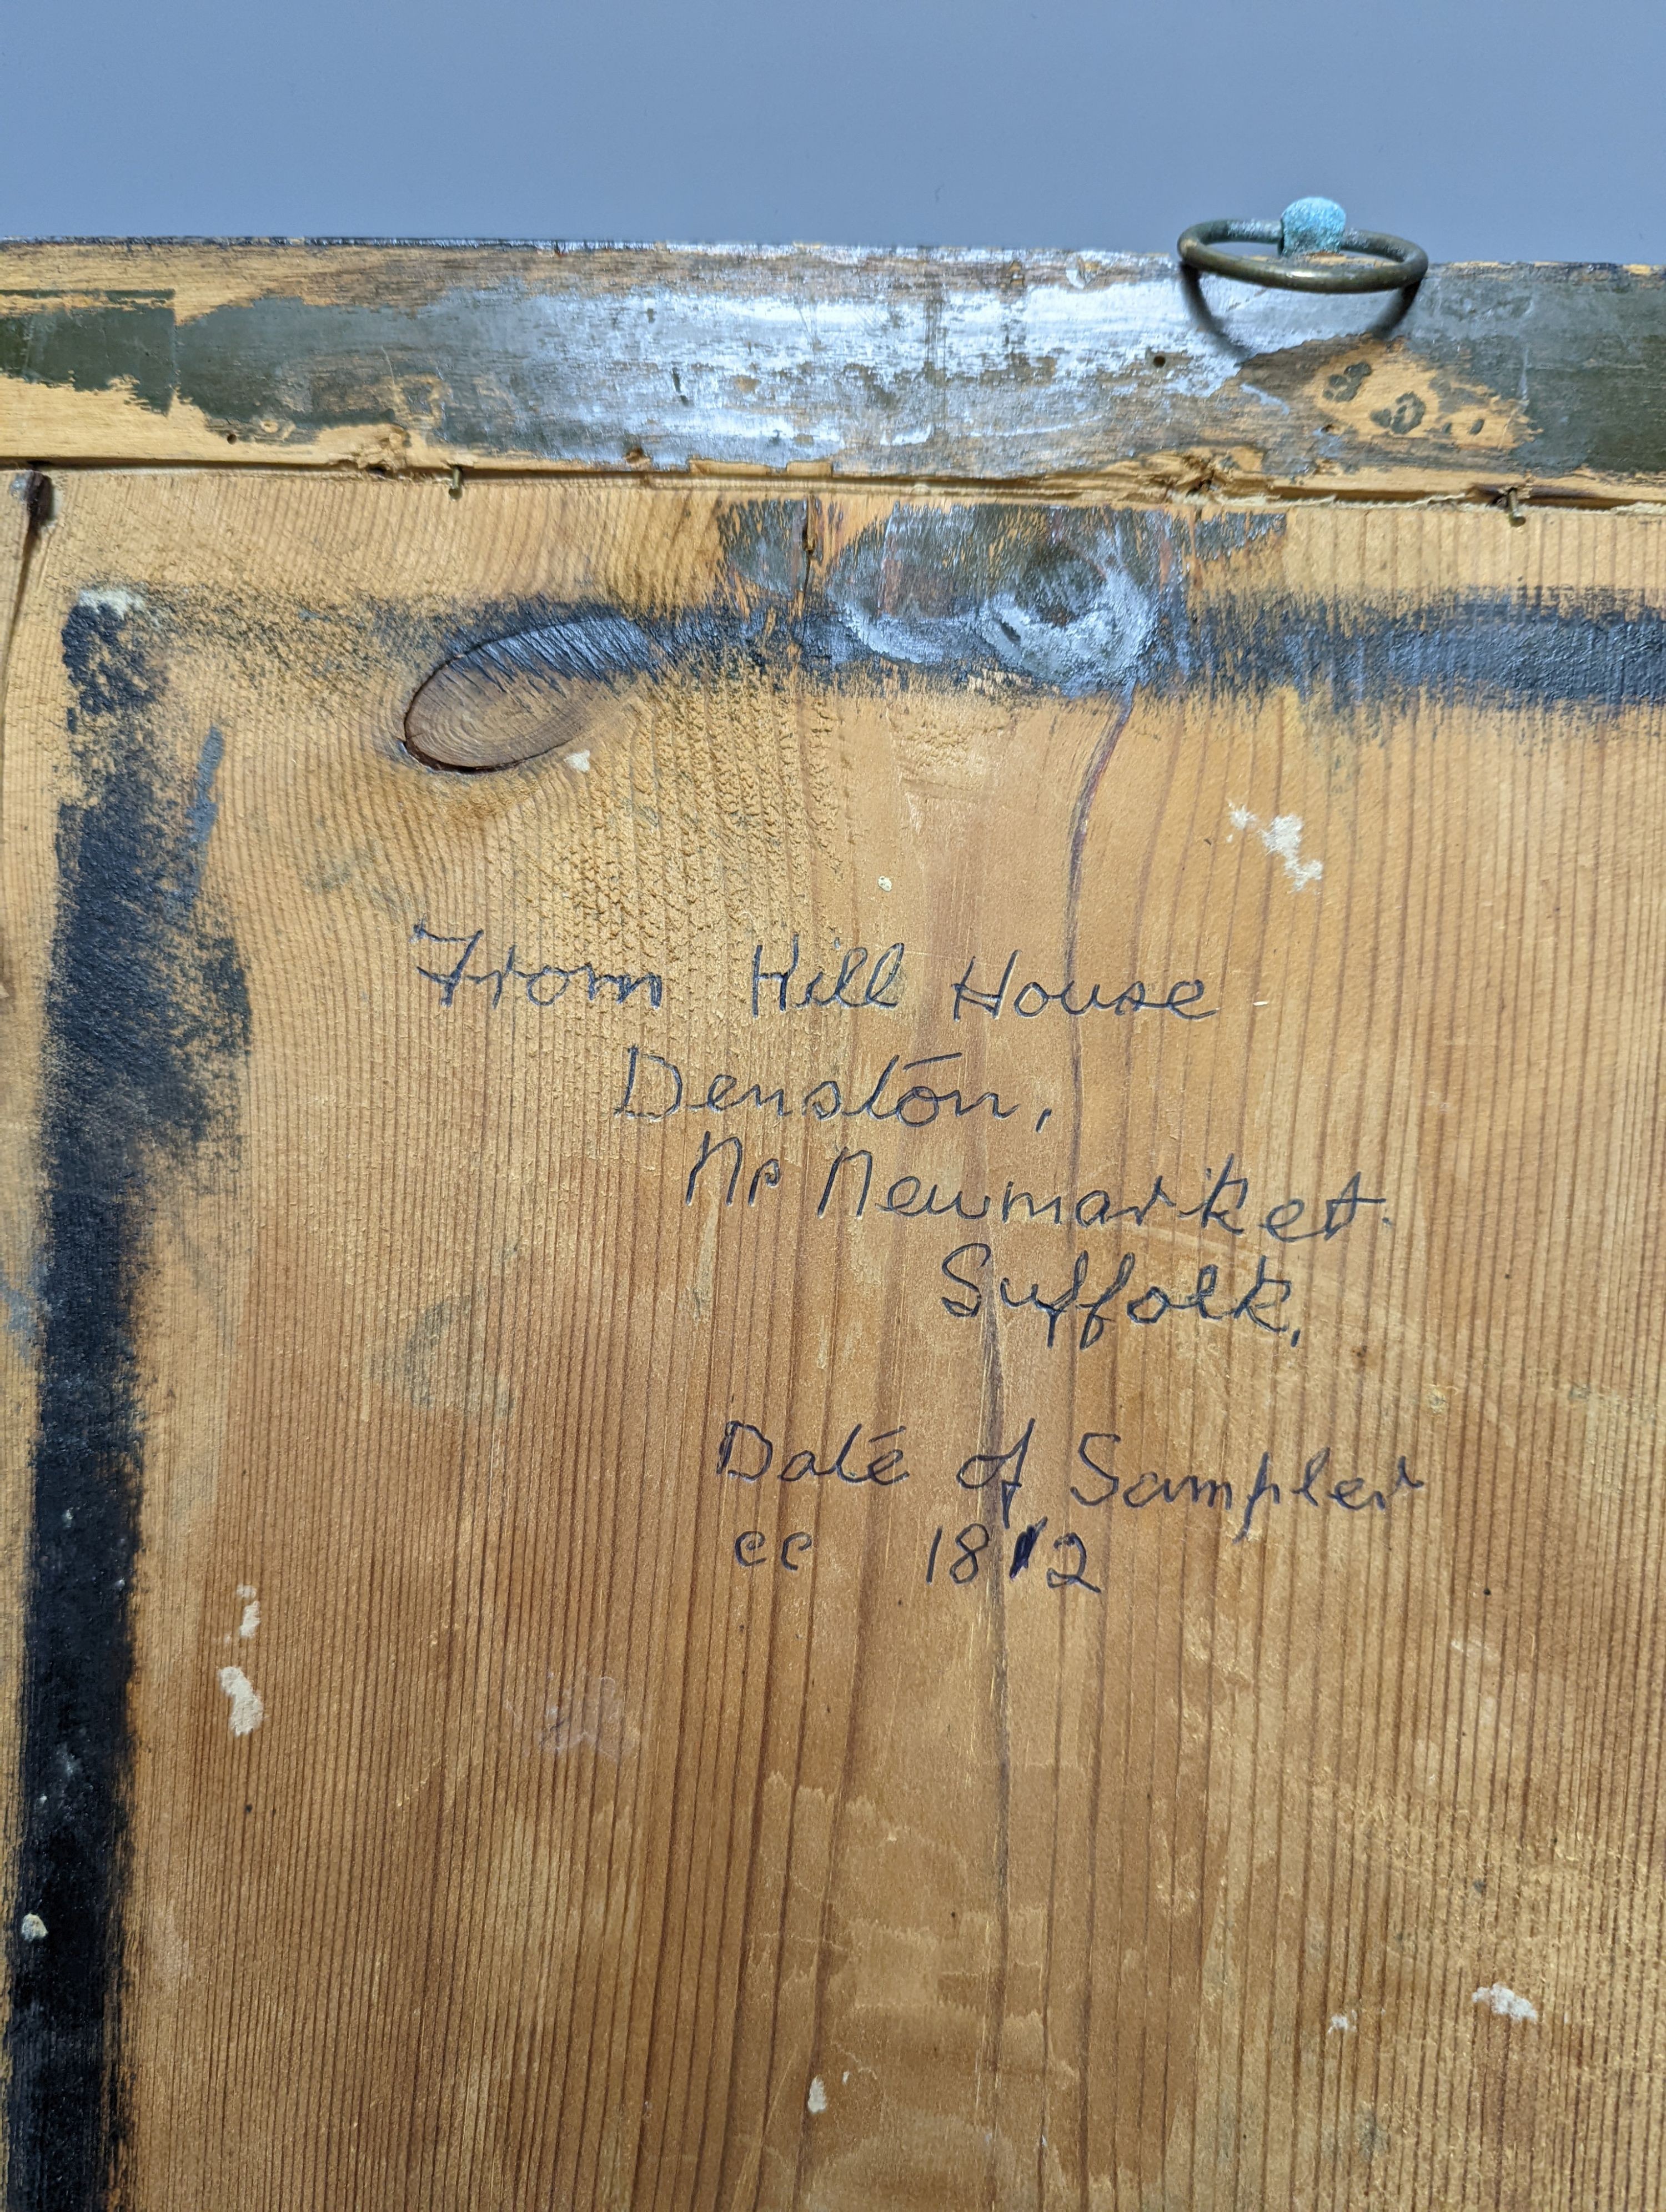 From Hill House
Denston,
Nr Newmarket.
Suffolk,
Date of Sampler
cc 1812